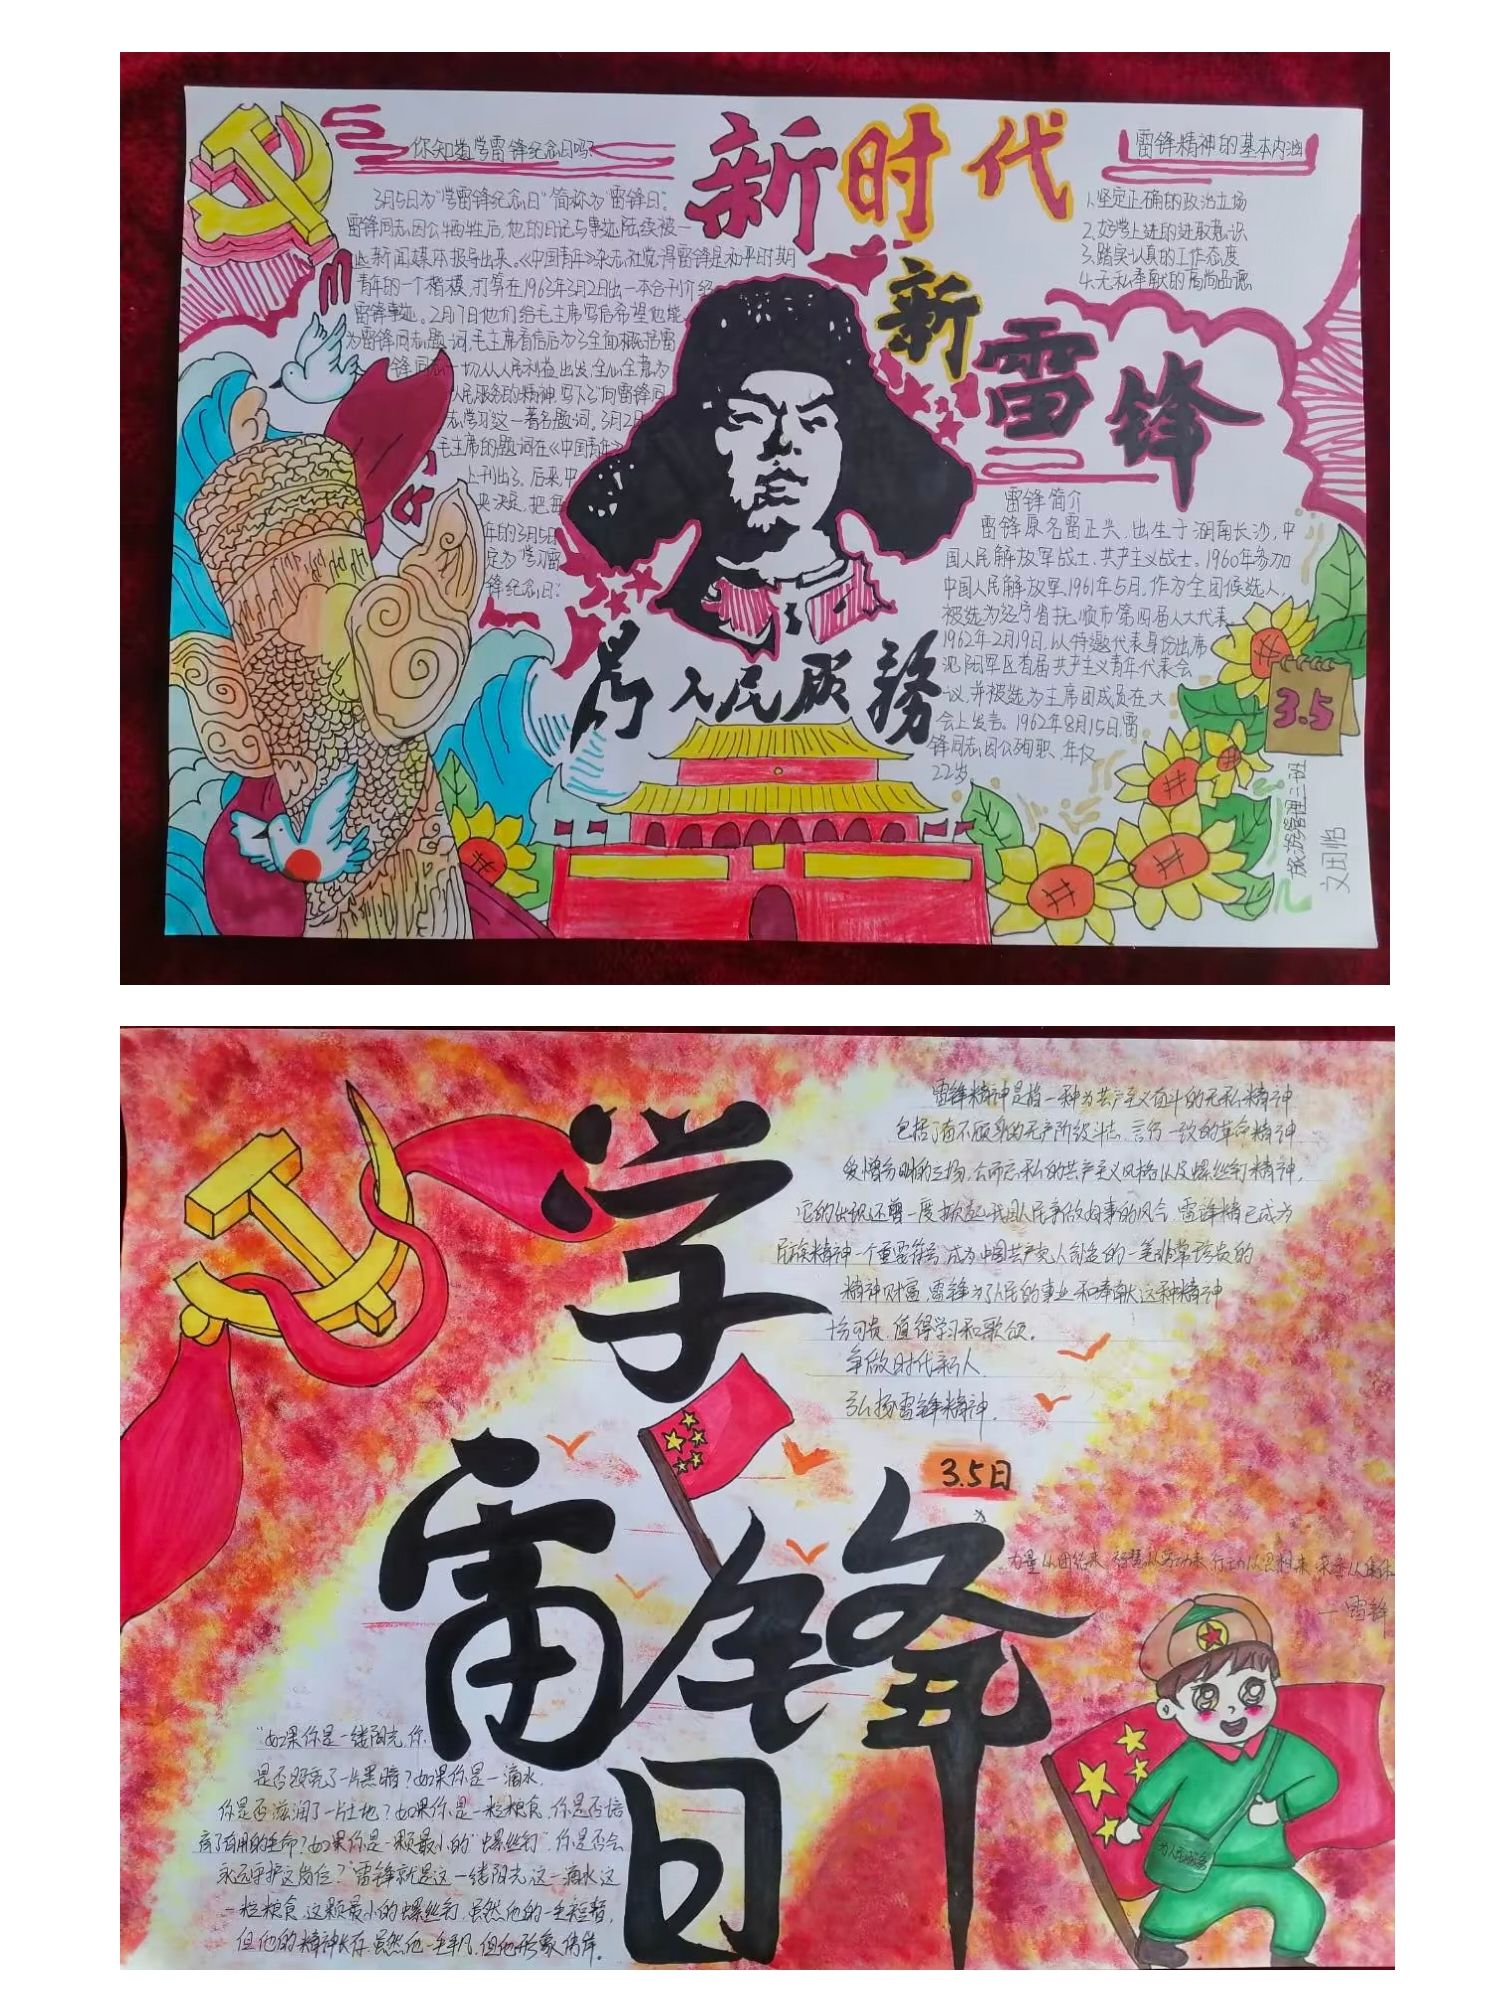 新时代
新雷锋
你知道学雷锋纪念日吗?
3月5日为"学雷锋纪念日"简称为"雷锋日"。
雷锋同志因公牺牲后,他的日记与事迹陆续被一
些新闻媒体报导出来。《中国青年》杂志社觉得雷锋是和平时期
青年的一个楷模,打算在1963年3月2日出一本合刊介绍
雷锋事迹。2月17日他们给毛主席写信希望他能
为雷锋同志题词,毛主席看信后为了全面概括雷
锋同志一切从人民利益出发,全心全意为
人民服务的精神,写下了"向雷锋同
志学习"这一著名题词。3月2日
毛主席的题词在《中国青年》
上刊出了。后来,中
央决定,把每
年的3月5日
定为"学习雷
锋纪念日:
雷锋精神的基本内涵
1.坚定正确的政治立场
2.好学上进的进取意识
3.踏实认真的工作态度
4.无私奉献的高尚品德
雷锋简介
雷锋原名雷正兴,出生于湖南长沙,中
国人民解放军战士、共产主义战士。1960年参加
中国人民解放军,1961年5月,作为全团候选人,
被选为辽宁省抚顺市第四届人大代表。
1962年2月19日,以特邀代表身份出席
沈阳军区首届共产主义青年代表会
议,并被选为主席团成员在大
会上发言。1962年8月15日,雷
锋同志因公殉职,年仅
22岁
为人民服務
3.5
旅游管理二班
文田怡
学
雷锋
日
雷锋精神是指一种为共产主义奋斗的无私精神
包括了奋不顾身的无产阶级斗志、言行一致的革命精神
爱憎分明的立场、公而忘私的共产主义风格以及螺丝钉精神,
它的出现还曾一度掀起我国人民新做好事的风气,雷锋精已成为
民族精神一个重要符号,成为中国共产党人创造的一笔非常珍贵的
精神财富,雷锋为了人民的事业和奉献这种精神
十分可贵,值得学习和歌颂。
争做时代新人
弘扬雷锋精神。
3.5日
力量从团结来,智慧从劳动来,行动从思想来,荣誉从集体
—雷锋
"如果你是一缕阳光,你
是否照亮了一片黑暗?如果你是一滴水,
你是否滋润了一片土地?如果你是一粒粮食,你是否培
育了有用的生命?如果你是一颗最小的"螺丝钉"你是否会
永远守护这岗位?"雷锋就是这一缕阳光,这一滴水,这
一粒粮食,这颗最小的螺丝钉,虽然他的一生短暂,
但他的精神长存,虽然他一生平凡,但他形象伟岸。
为人民服务